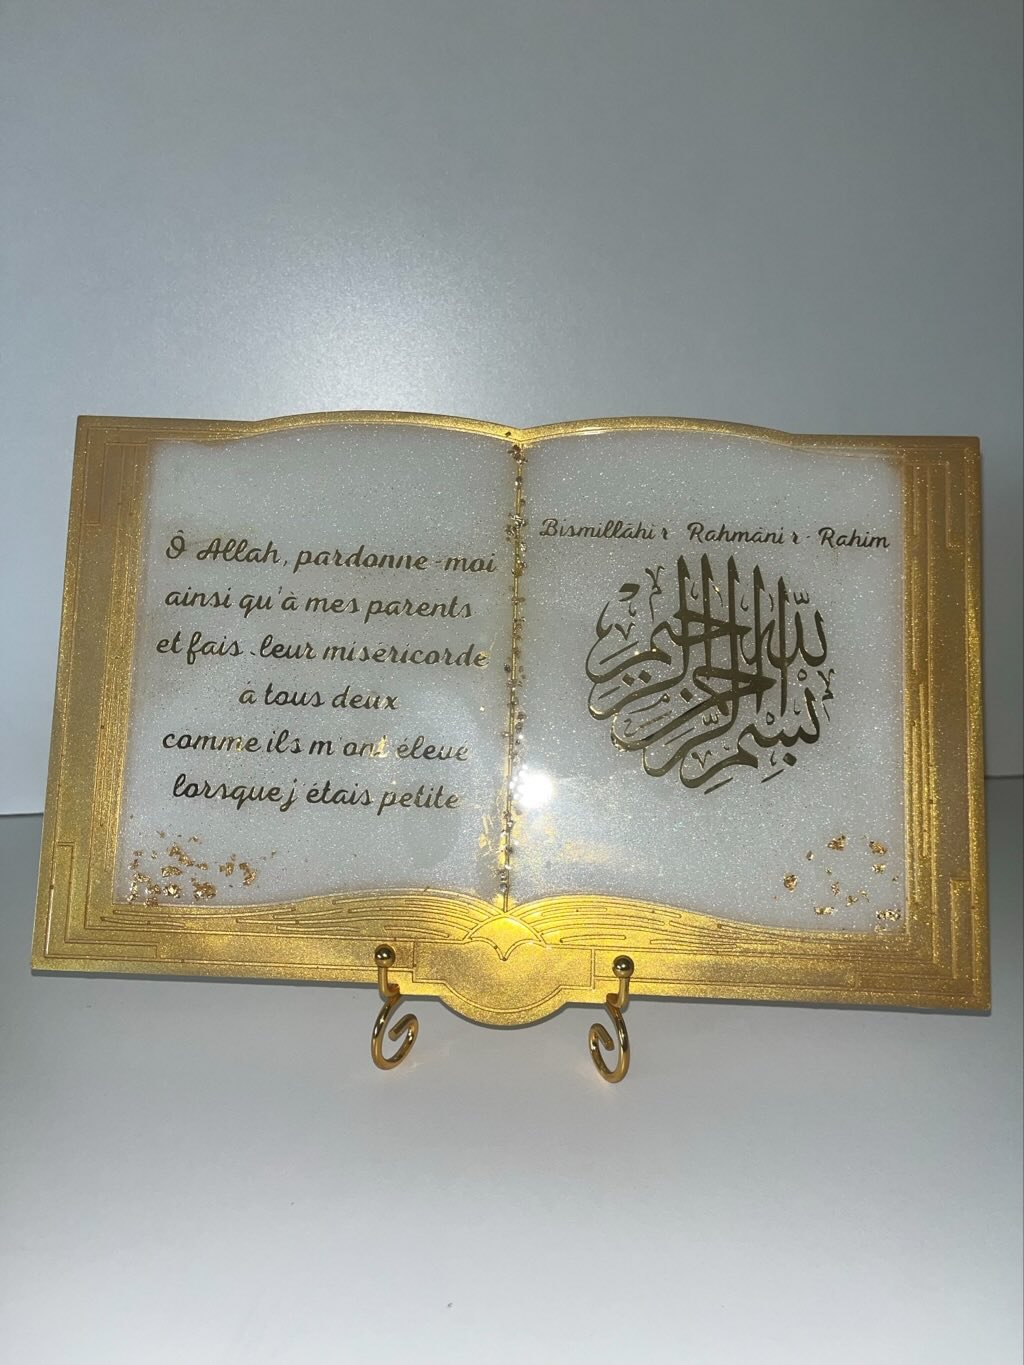 Ô Allah, pardonne-moi
ainsi qu'à mes parents
et fais-leur miséricorde
à tous deux
comme ils m'ont élevé
lorsque j'étais petite
Bismillâhi r-Rahmâni r-Rahim
بسم الله الرحمن الرحيم